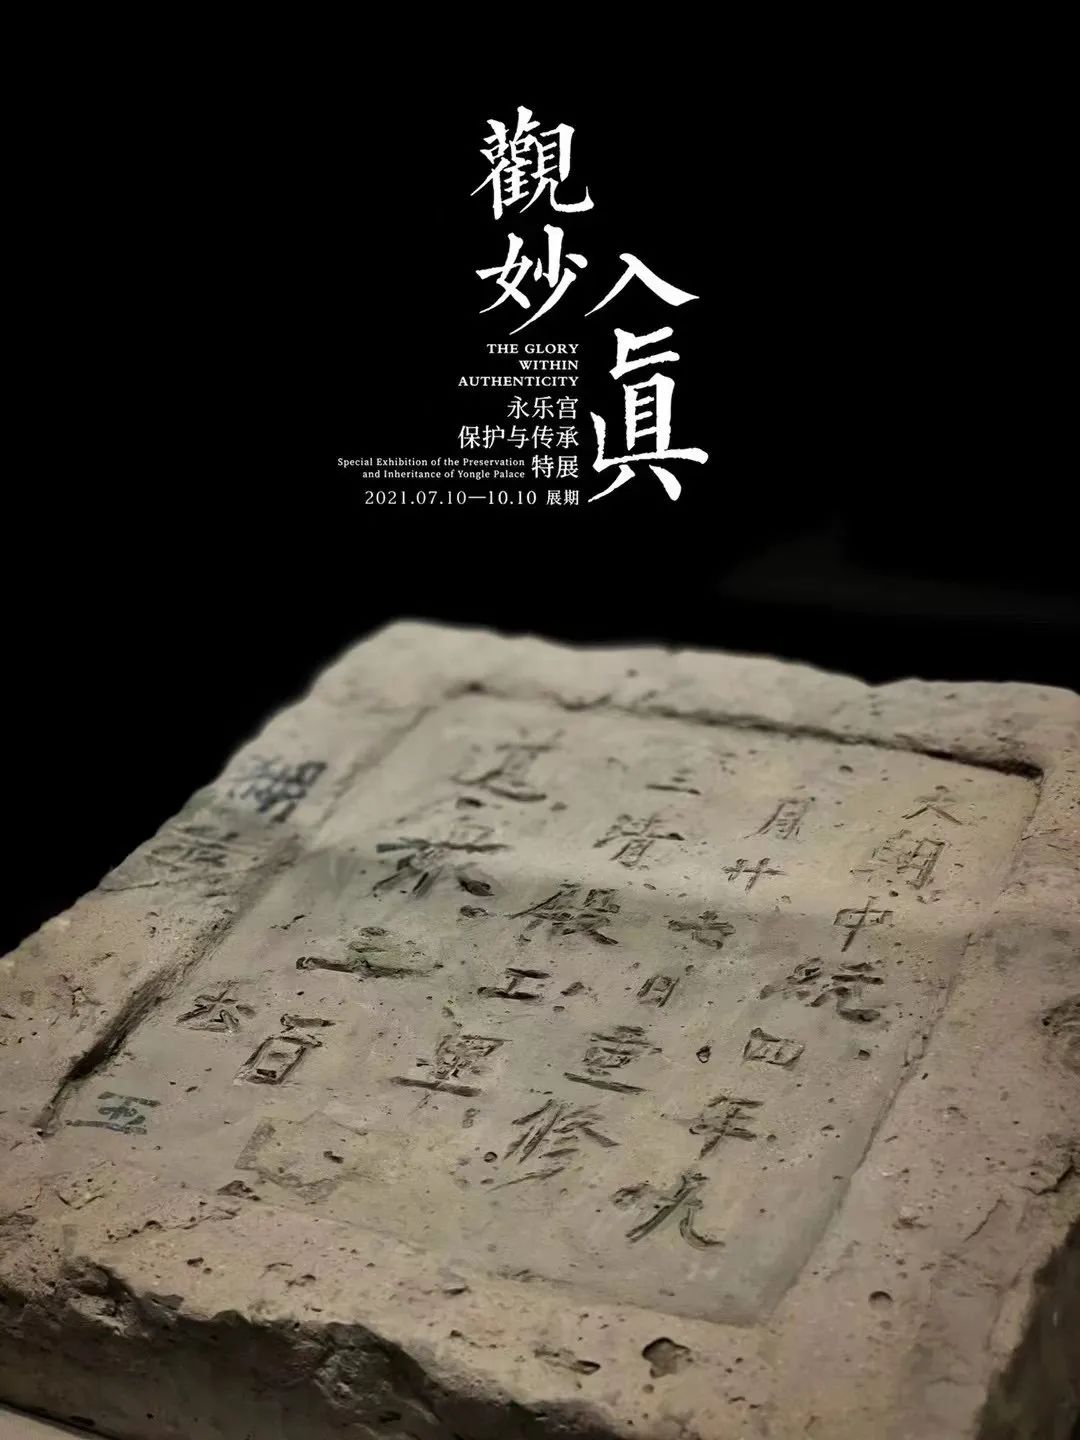 觀妙
入眞
THE GLORY
WITHIN
AUTHENTICITY
永乐宫
保护与传承
特展
Special Exhibition of the Preservation
and Inheritance of Yongle Palace
2021.07.10—10.10 展期
大朝中統四年
月廿七日重修
三清殿工畢
道眾
百